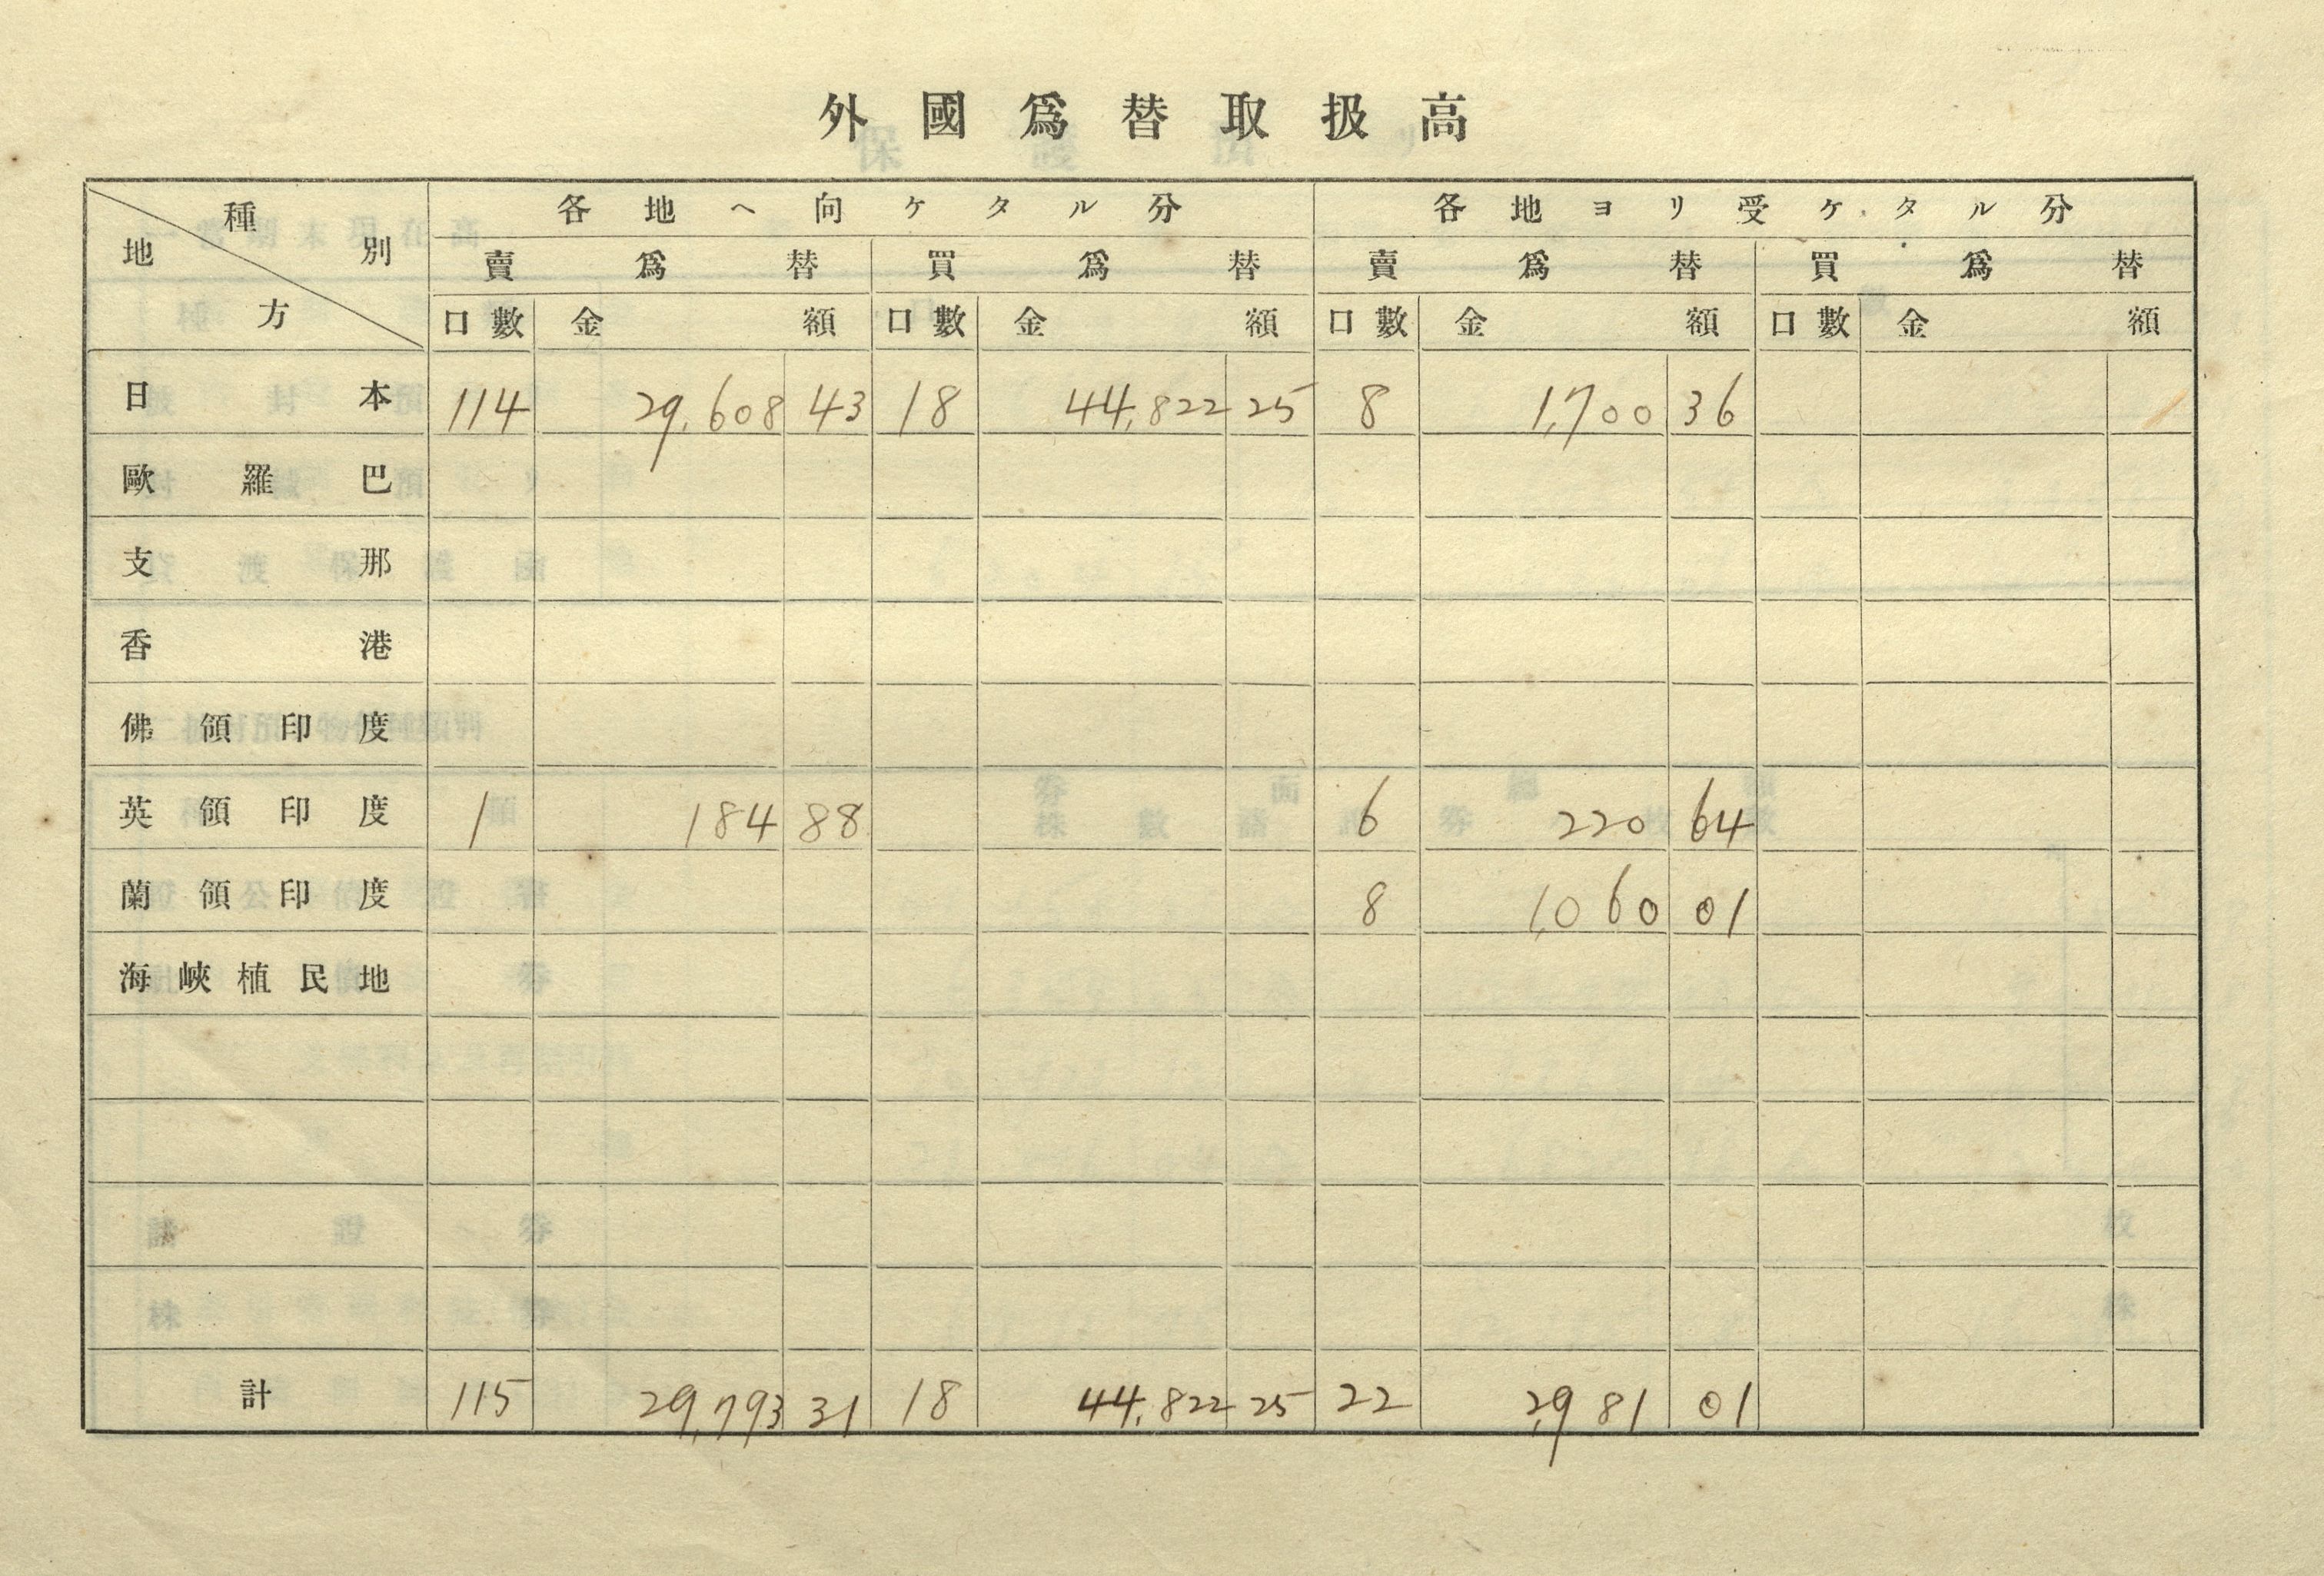 外國爲替取扱高
種別 地方 各地ヘ向ケタル分 各地ヨリ受ケタル分
賣爲替 買爲替 賣爲替 買爲替
口數 金額 口數 金額 口數 金額 口數 金額
日本 114 29,608 43 18 44,822 25 8 1,700 36
歐羅巴
支那
香港
佛領印度
英領印度 1 184 88 6 220 64
蘭領印度 8 1,060 01
海峽植民地
計 115 29,793 31 18 44,822 25 22 2,981 01